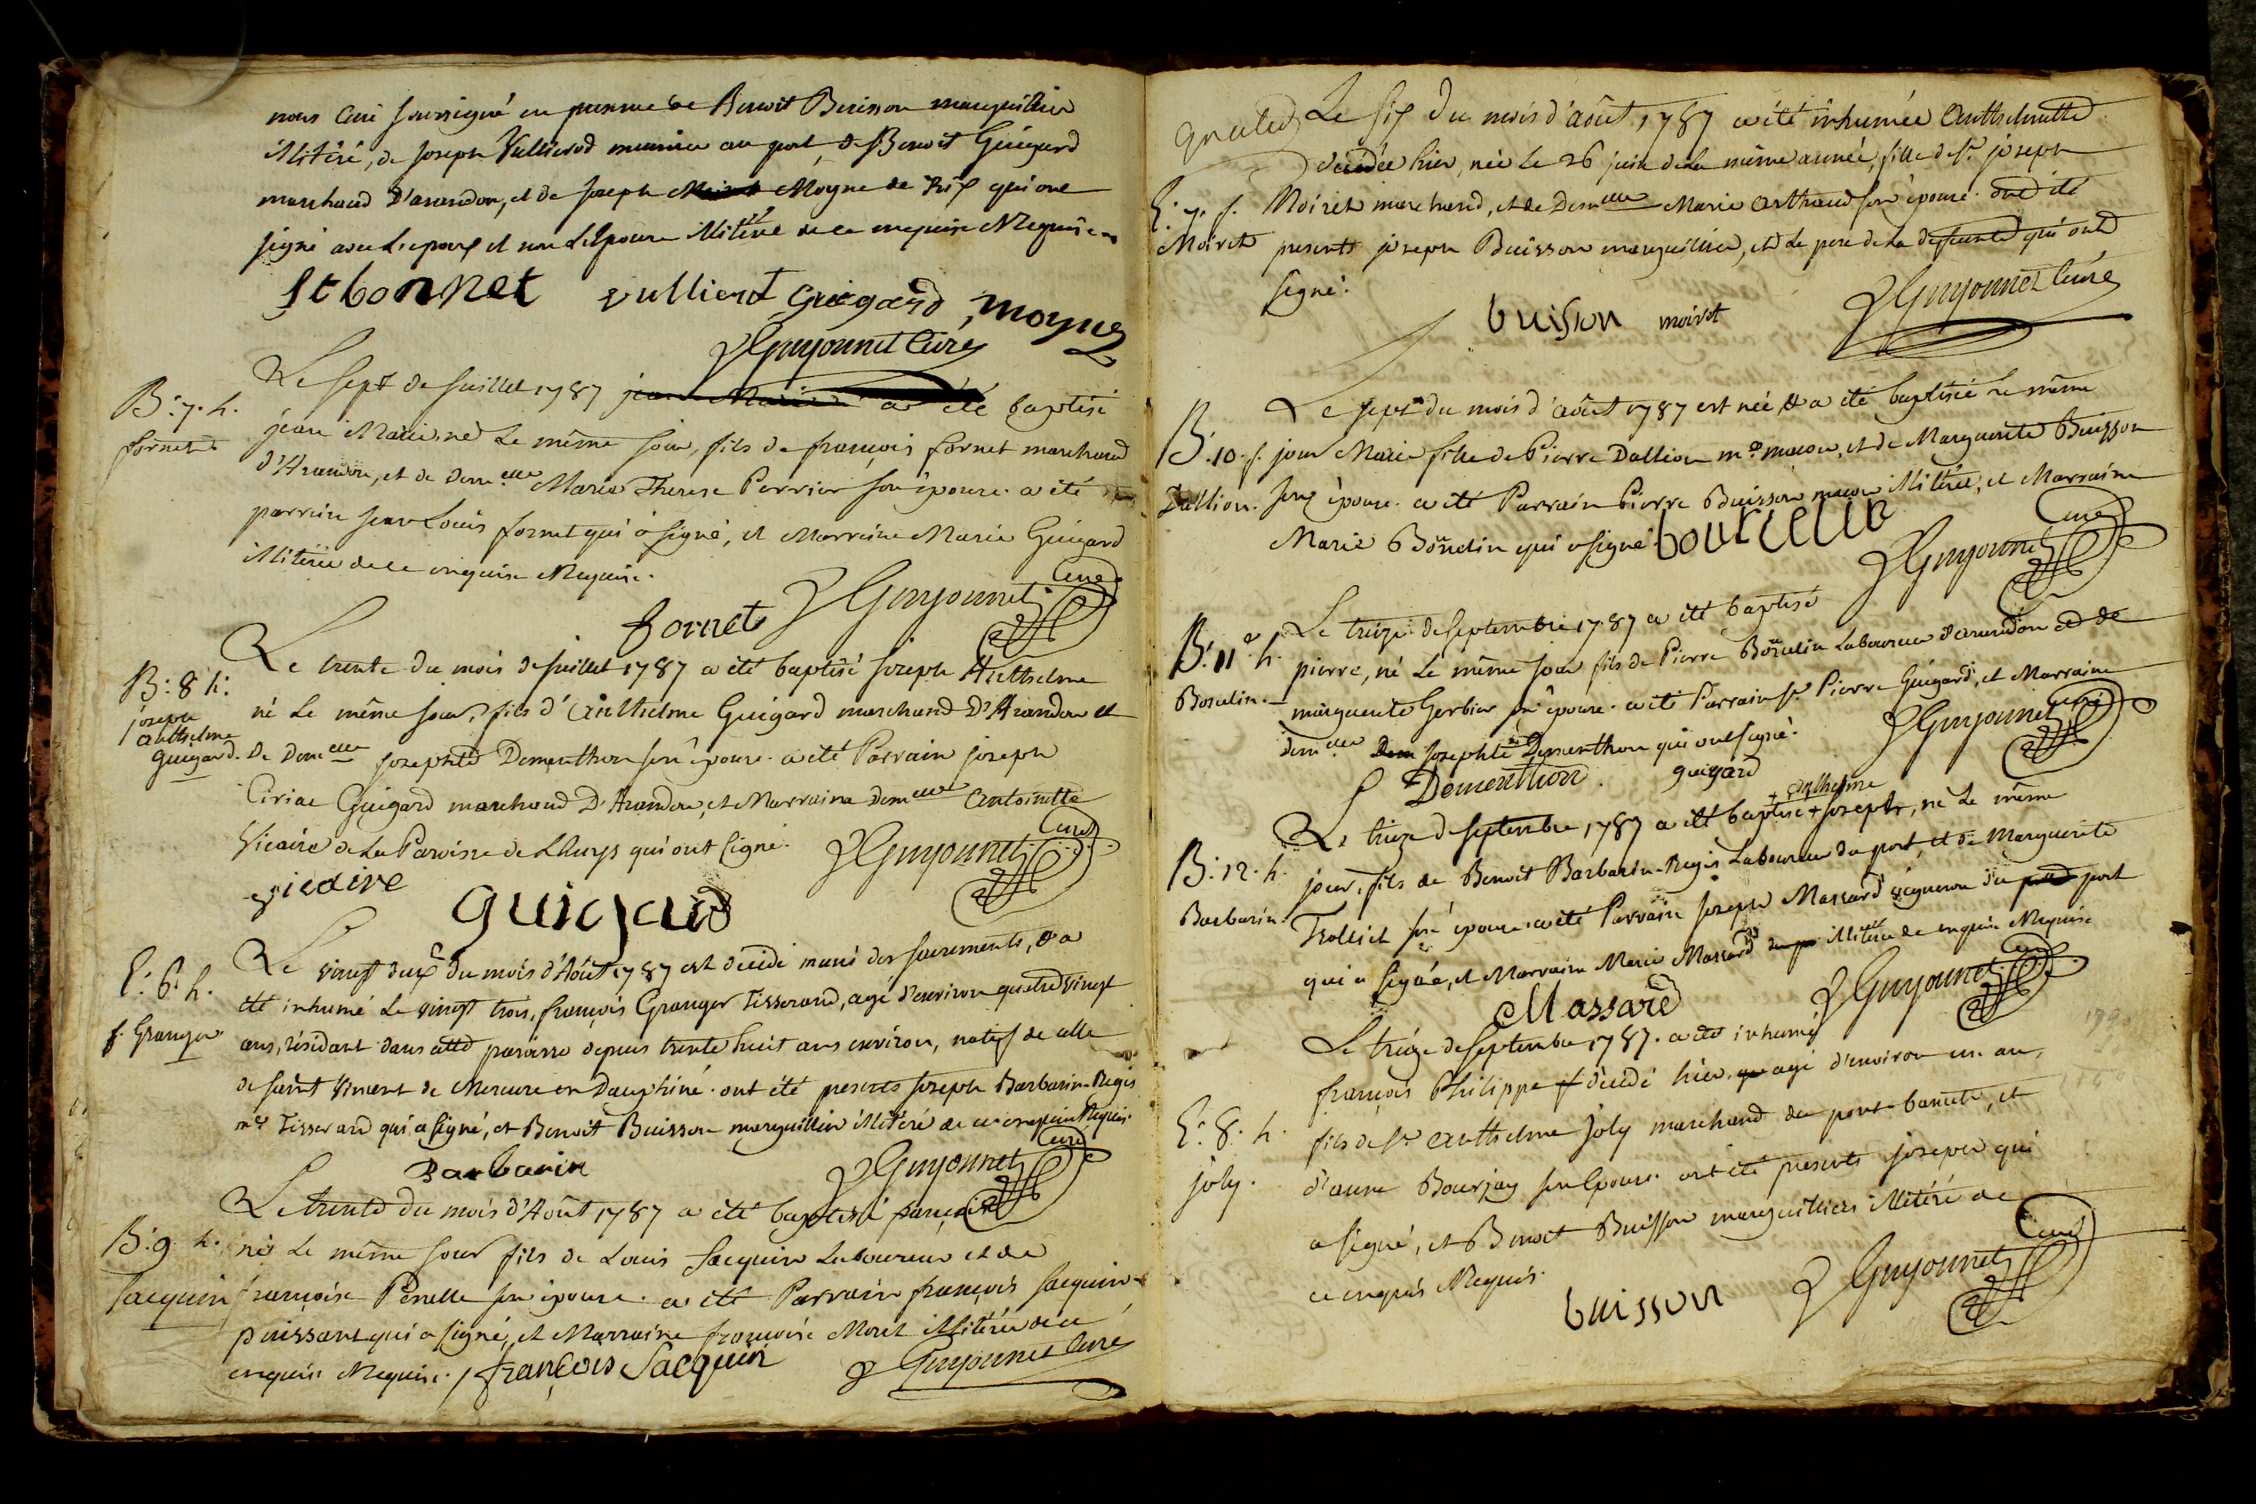 nous Curé soussigné en presence de Benoit Buisson marguillier
illitéré, de joseph Vullierod meunier au port, de Benoit Guigard
marchand d'arandon, et de joseph Moyne de Trix qui ont
signé avec L'epoux et non L'Epouse illitérée de ce enquise Requise
St bonnet vullierd Guigard moyne
Guyonnet Curé
B. 7. h.
fornet
Le sept de Juillet 1787 jean Marie a été baptisé
jean Marie né Le même jour, fils de françois fornet marchand
d'Arandon, et de dem.elle Marie Therese Perrier son épouse. a été
parrain Jean Louis fornet qui a signé, et Marraine Marie Guigard
illitérée de ce enquise Requise.
fornet Guyonnet Curé
B. 8 h.
joseph
anthelme
guigard.
Le trente du mois de Juillet 1787 a été baptisé joseph Anthelme
né Le même jour, fils d'Anthelme Guigard marchand D'Arandon et
De Dem.elle josephte Dementhon son épouse. a été Parrain joseph
Ciriac Guigard marchand D'Arandon, et Marraine Dem.elle antoinette
Vicaire de La Paroisse de Lhuys qui ont signé.
vicaire guigard Guyonnet Curé
E. 6. h.
f. Granger
Le vingt deux du mois d'Août 1787 est decédé muni des sacrements, & a
été inhumé Le vingt trois, françois Granger Tisserand, agé d'environ quatrevingt
ans, résidant dans cette paroisse depuis trente huit ans environ, natif de celle
de saint Vincent de Mercure en Dauphiné. ont été presents joseph Barbarin-Regis
m.e Tisserand qui a signé, et Benoit Buisson marguillier illitéré de ce enquis Requis.
Barbarin Guyonnet Curé
B. 9. h.
Jacquin
Le trente du mois d'Août 1787 a été baptisé françois
né Le même jour fils de Louis Jacquin Laboureur et de
françoise Perelle son épouse. a été Parrain françois Jacquin
puissant qui a signé, et Marraine françoise Morel illitérée de ce
enquise Requise. françois Jacquin Guyonnet Curé
gratis
E. 7. f.
Moiret
Le six du mois d'août 1787 a été inhumée Anthelmette
decédée hier, née Le 26 juin de la même année, fille de s.r joseph
Moiret marchand, et de Dem.elle Marie Arthaud son épouse. ont été
presents joseph Buisson marguillier, et Le pere de La defunte qui ont
signé.
buisson moiret Guyonnet Curé
B. 10. f.
Dallion.
Le sept du mois d'août 1787 est née, & a été baptisée Le même
jour Marie fille de Pierre Dallion m.e maçon, et de Marguerite Buisson
son épouse. a été Parrain Pierre Buisson maçon illitéré, et Marraine
Marie Bourcelin qui a signé bourcelin Guyonnet Curé
B. 11. h.
Borcelin.
Le treize de septembre 1787 a été baptisé
pierre, né Le même jour fils de Pierre Borcelin Laboureur d'arandon et de
marguerite Gerbier son épouse. a été Parrain s.r Pierre Guigard, et Marraine
dem.elle Dem Josephte Dementhon qui ont signé.
Dementhon. guigard Guyonnet Curé
B. 12. h.
Barbarin
Le treize de septembre 1787 a été baptisé + anthelme + joseph, né Le même
jour, fils de Benoit Barbarin-Regis Laboureur du port, et de Marguerite
Trolliet son épouse. a été Parrain joseph Massard vigneron du port
qui a signé, et Marraine Marie Massard illitérée de ce enquise Requise
Massard Guyonnet Curé
E. 8. h.
joly.
Le treize de septembre 1787. a été inhumé
françois Philippe decédé hier agé d'environ un an,
fils de s.r Anthelme joly marchand du port, et
d'anne Bourjay son Epouse. ont été presents joseph qui
a signé, et Benoit Buisson marguilliers illitéré de
ce enquis Requis.
buisson Guyonnet Curé